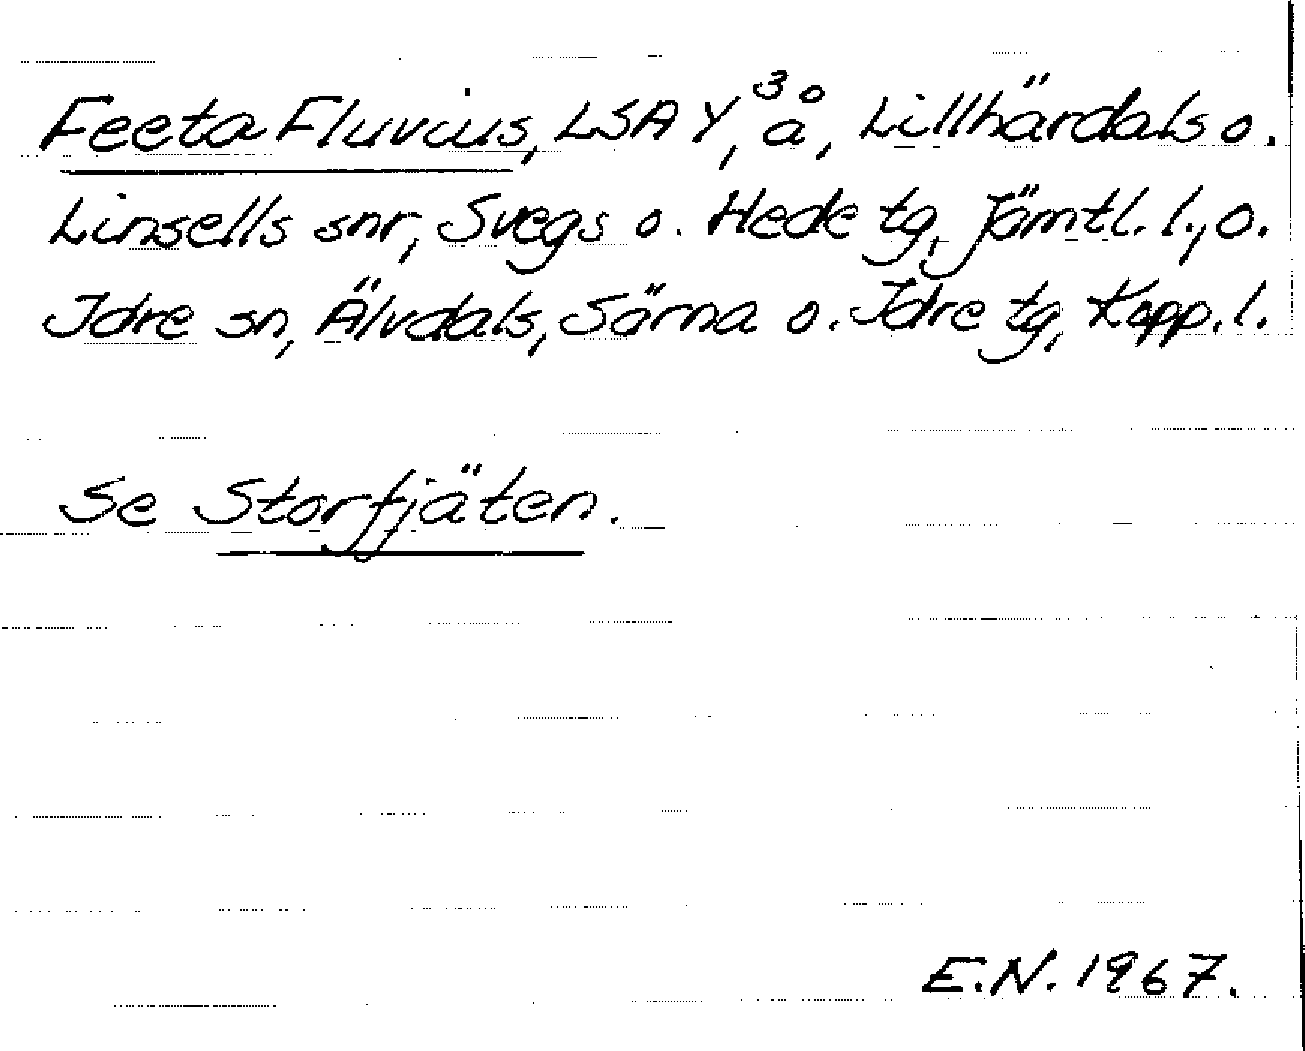 Feeta Fluvius, LSA Y³, å, Lillhärdals o.
Linsells snr, Svegs o. Hede tg, Jämtl. l., o.
Idre sn, Älvdals, Särna o. Idre tg, Kopp. l.
Se Storfjäten.
E.N. 1967.